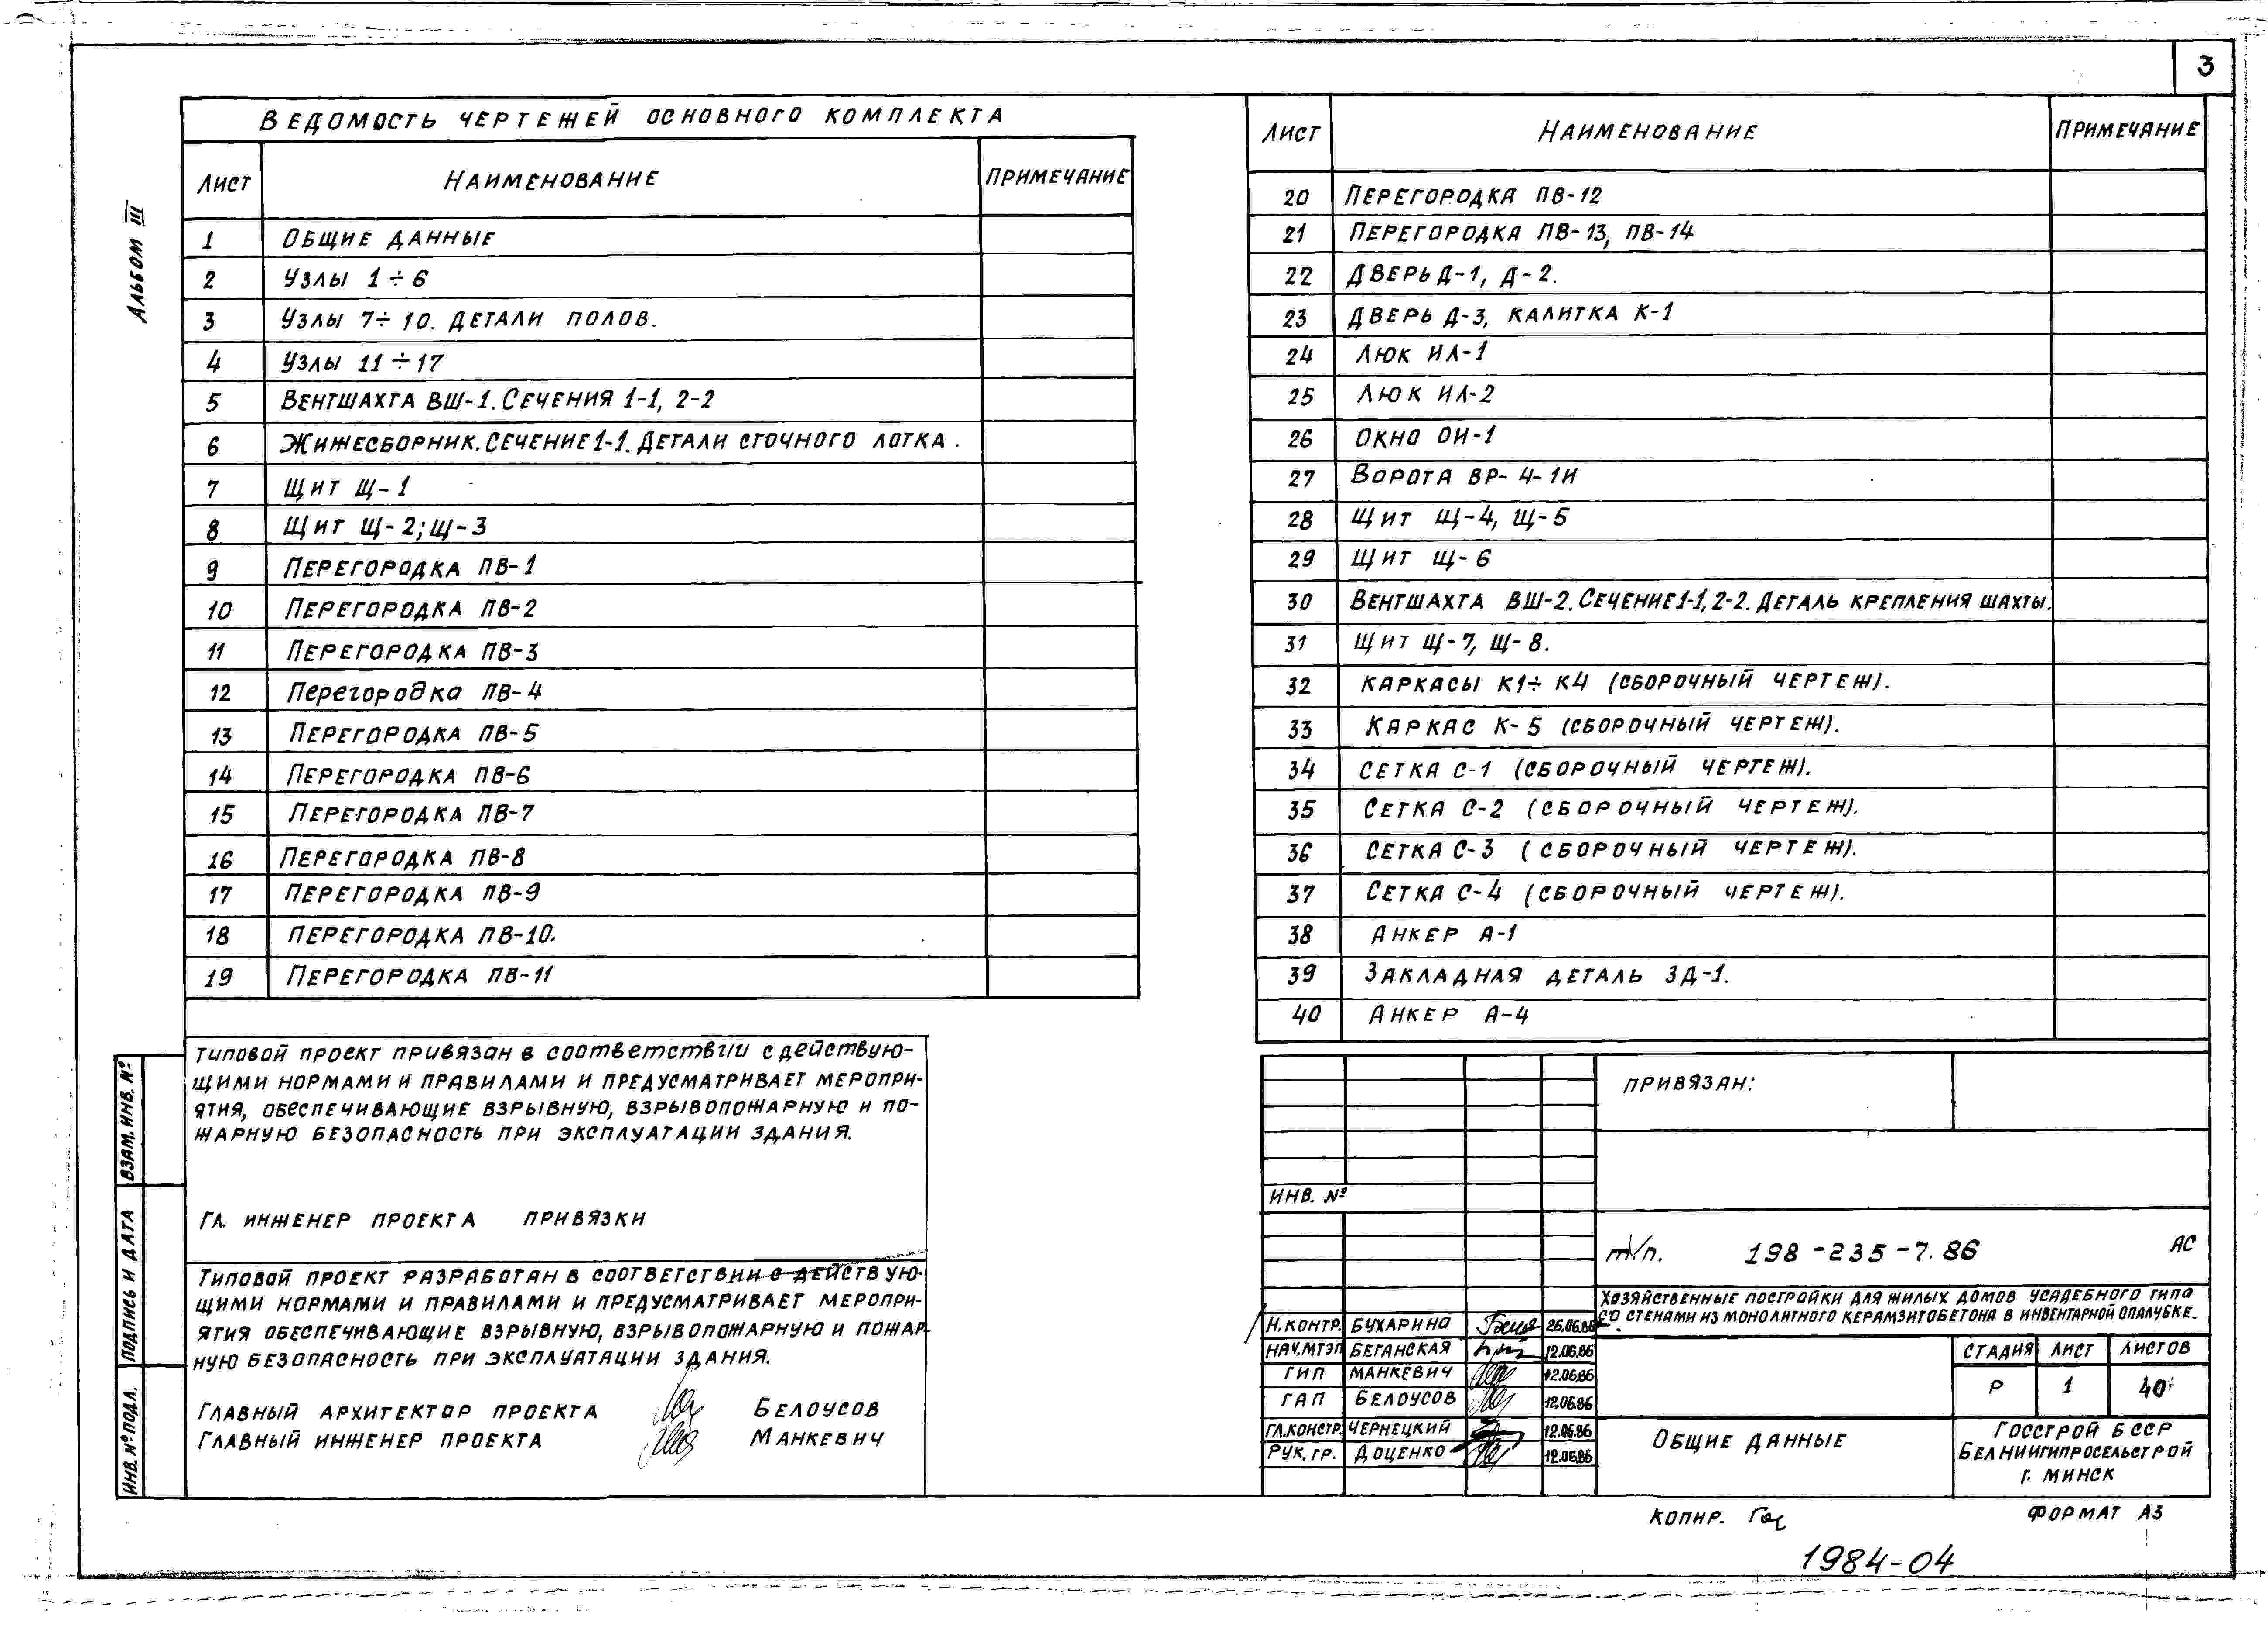 3
Альбом III
Ведомость чертежей основного комплекта
Лист Наименование Примечание
1 Общие данные
2 Узлы 1÷6
3 Узлы 7÷10. Детали полов.
4 Узлы 11÷17
5 Вентшахта ВШ-1. Сечения 1-1, 2-2
6 Жижесборник. Сечение 1-1. Детали сточного лотка.
7 Щит Щ-1
8 Щит Щ-2; Щ-3
9 Перегородка ПВ-1
10 Перегородка ПВ-2
11 Перегородка ПВ-3
12 Перегородка ПВ-4
13 Перегородка ПВ-5
14 Перегородка ПВ-6
15 Перегородка ПВ-7
16 Перегородка ПВ-8
17 Перегородка ПВ-9
18 Перегородка ПВ-10.
19 Перегородка ПВ-11
Лист Наименование Примечание
20 Перегородка ПВ-12
21 Перегородка ПВ-13, ПВ-14
22 Дверь Д-1, Д-2.
23 Дверь Д-3, калитка К-1
24 Люк ИЛ-1
25 Люк ИЛ-2
26 Окно ОИ-1
27 Ворота ВР-4-1И
28 Щит Щ-4, Щ-5
29 Щит Щ-6
30 Вентшахта ВШ-2. Сечение 1-1, 2-2. Деталь крепления шахты.
31 Щит Щ-7, Щ-8.
32 Каркасы К1÷К4 (сборочный чертеж).
33 Каркас К-5 (сборочный чертеж).
34 Сетка С-1 (сборочный чертеж).
35 Сетка С-2 (сборочный чертеж).
36 Сетка С-3 (сборочный чертеж).
37 Сетка С-4 (сборочный чертеж).
38 Анкер А-1
39 Закладная деталь ЗД-1.
40 Анкер А-4
Типовой проект привязан в соответствии с действую-
щими нормами и правилами и предусматривает меропри-
ятия, обеспечивающие взрывную, взрывопожарную и по-
жарную безопасность при эксплуатации здания.
Гл. инженер проекта привязки
Типовой проект разработан в соответствии с действую-
щими нормами и правилами и предусматривает меропри-
ятия обеспечивающие взрывную, взрывопожарную и пожар-
ную безопасность при эксплуатации здания.
Главный архитектор проекта Белоусов
Главный инженер проекта Манкевич
Взам. инв. №
Подпись и дата
Инв. № подл.
Привязан:
Инв. №
т/п. 198-235-7.86 АС
Хозяйственные постройки для жилых домов усадебного типа
со стенами из монолитного керамзитобетона в инвентарной опалубке.
Н. контр. Бухарина 26.06.86
Нач. МТЭП Беганская 12.06.86
ГИП Манкевич 12.06.86
ГАП Белоусов 12.06.86
Гл. констр. Чернецкий 12.06.86
Рук. гр. Доценко 12.06.86
Стадия Лист Листов
Р 1 40
Общие данные
Госстрой БССР
Белниигипросельстрой
г. Минск
Копир. Формат А3
1984-04